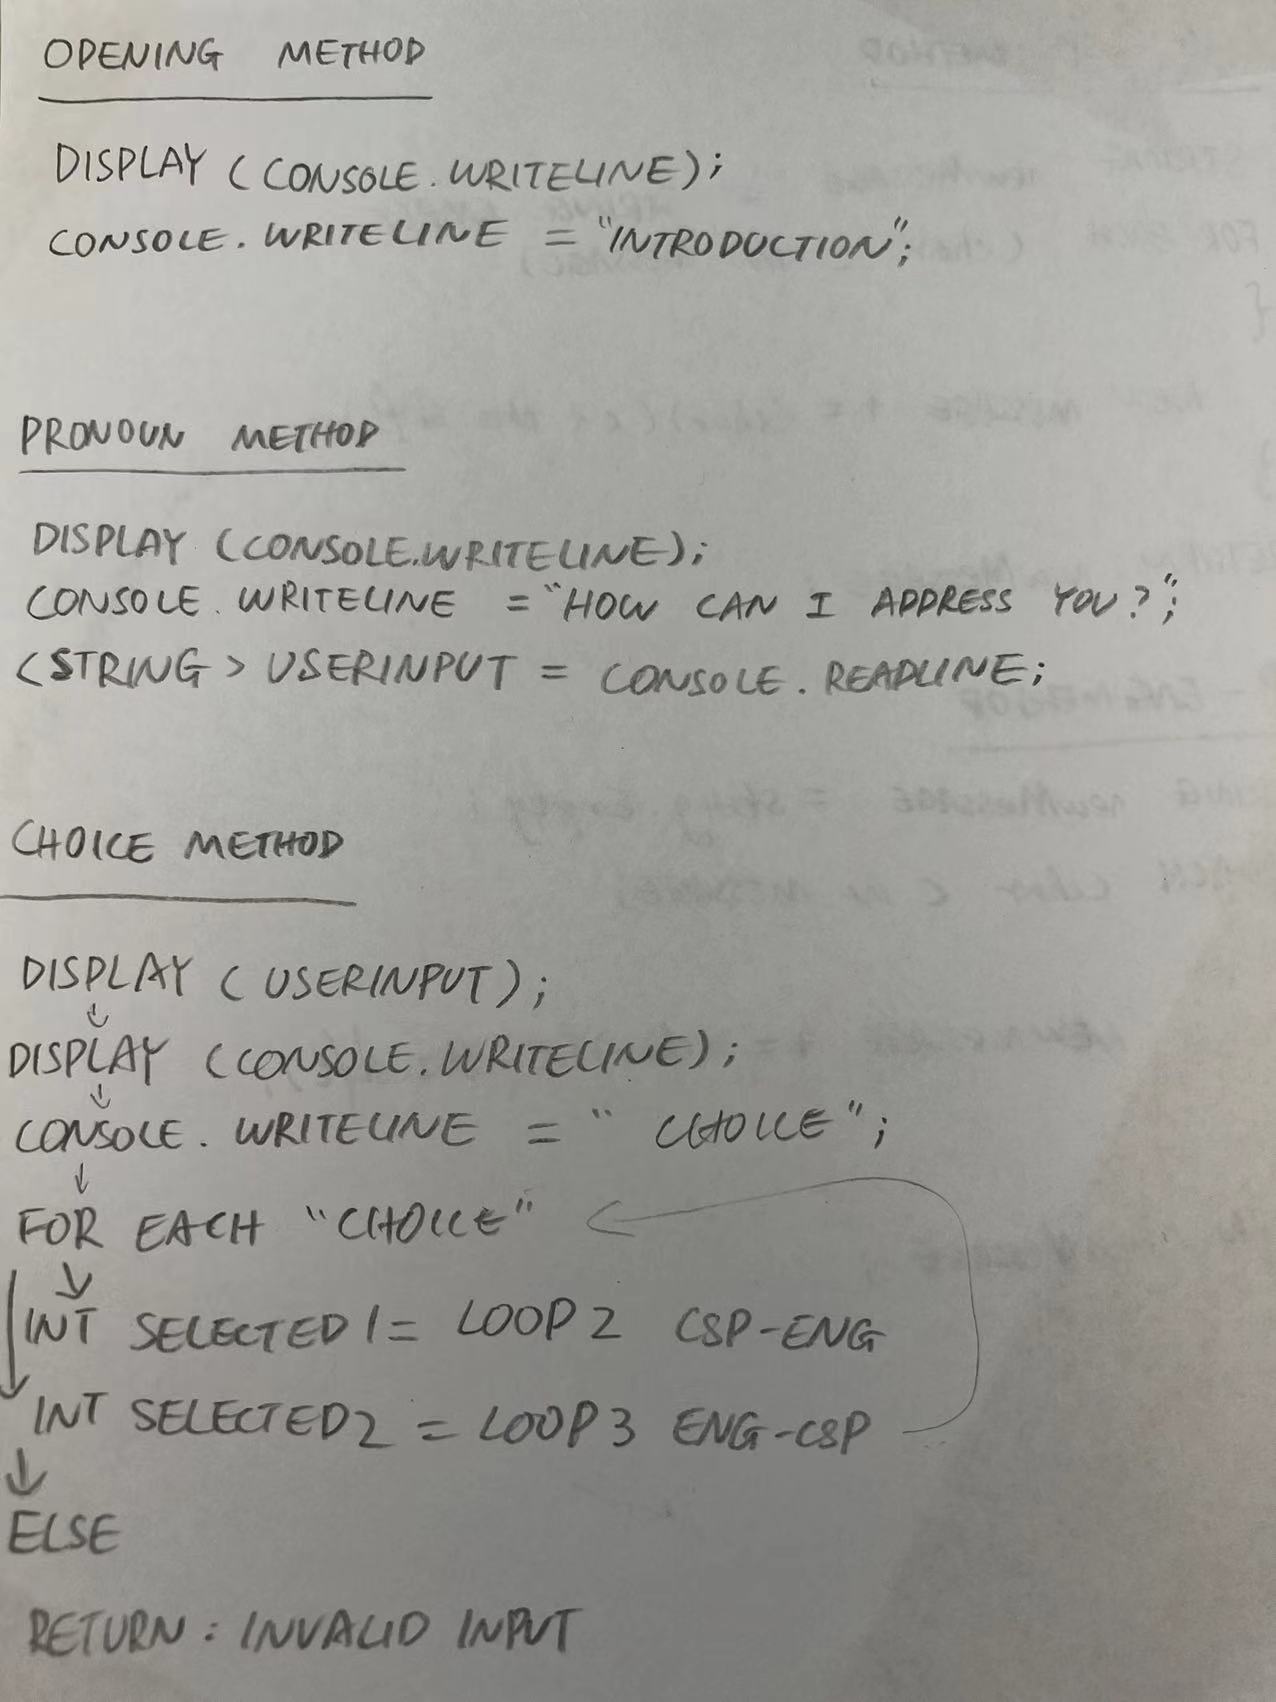 OPENING METHOD
DISPLAY (CONSOLE.WRITELINE);
CONSOLE.WRITELINE = "INTRODUCTION";
PRONOUN METHOD
DISPLAY (CONSOLE.WRITELINE);
CONSOLE.WRITELINE = "HOW CAN I ADDRESS YOU?";
<STRING> USERINPUT = CONSOLE.READLINE;
CHOICE METHOD
DISPLAY (USERINPUT);
↓
DISPLAY (CONSOLE.WRITELINE);
↓
CONSOLE.WRITELINE = "CHOICE";
↓
FOR EACH "CHOICE"
↓
INT SELECTED1 = LOOP2 CSP-ENG
INT SELECTED2 = LOOP3 ENG-CSP
↓
ELSE
RETURN: INVALID INPUT